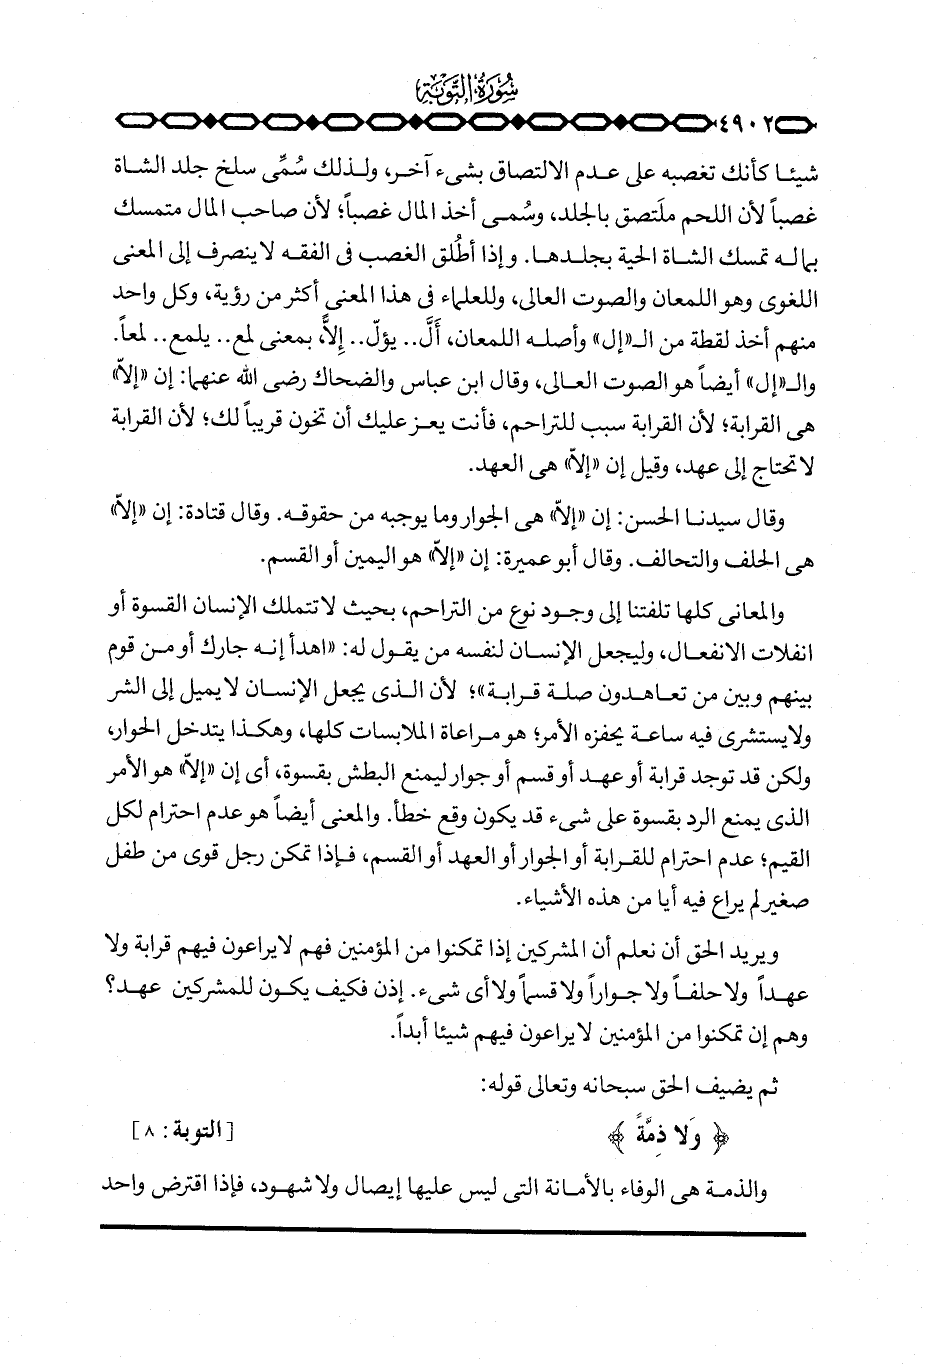 سُورَةُ التَّوْبَةِ
٤٩٠٢
شيئـا كأنك تغصبه على عـدم الالتصاق بشىء آخـر، ولـذلك سُمِّى سلخ جلد الشاة
غصباً لأن اللحم ملَتصق بالجلد، وسُمـى أخذ المال غصباً؛ لأن صاحب المال متمسك
بماله تمسك الشاة الحية بجلـدهـا. وإذا أطُلق الغصب فى الفقه لا ينصرف إلى المعنى
اللغوى وهو اللمعان والصوت العالى، وللعلماء فى هذا المعنى أكثر من رؤية، وكل واحد
منهم أخذ لقطة من الـ«إل» وأصلـه اللمعان، أَلَّ.. يؤلّ.. إلاًّ، بمعنى لمع.. يلمع.. لمعاً.
والـ«إل» أيضاً هو الصوت العالى، وقال ابن عباس والضحاك رضى الله عنهما: إن «إلاّ»
هى القرابة؛ لأن القرابة سبب للتراحم، فأنت يعـز عليك أن تخون قريباً لك؛ لأن القرابة
لا تحتاج إلى عهد، وقيل إن «إلاّ» هى العهد.
وقال سيدنـا الحسن: إن «إلاّ» هى الجوار وما يوجبه من حقوقـه. وقال قتادة: إن «إلاّ»
هى الحلف والتحالف. وقال أبو عميرة: إن «إلاّ» هو اليمين أو القسم.
والمعانى كلها تلفتنا إلى وجـود نوع من التراحم، بحيث لا تتملك الإنسان القسوة أو
انفلات الانفعـال، وليجعل الإنسـان لنفسه من يقـول له: «اهدأ إنـه جارك أو مـن قوم
بينهم وبين من تعـاهـدون صلـة قـرابـة»؛ لأن الـذى يجعل الإنسـان لا يميل إلى الشر
ولا يستشرى فيه ساعـة يحفزه الأمر؛ هو مـراعاة الملابسات كلها، وهكـذا يتدخل الحوار،
ولكن قد توجد قرابة أو عهـد أو قسم أو جوار ليمنع البطش بقسوة، أى إن «إلاّ» هو الأمر
الذى يمنع الرد بقسوة على شىء قد يكون وقع خطأ. والمعنى أيضاً هو عدم احترام لكل
القيم؛ عدم احترام للقـرابة أو الجوار أو العهد أو القسم، فـإذا تمكن رجل قوى من طفل
صغير لم يراع فيه أيا من هذه الأشياء.
ويريد الحق أن نعلم أن المشركين إذا تمكنوا من المؤمنين فهم لا يراعون فيهم قرابة ولا
عهـداً ولا حلفـاً ولا جـواراً ولا قسماً ولا أى شىء. إذن فكيف يكـون للمشركين عهـد؟
وهم إن تمكنوا من المؤمنين لا يراعون فيهم شيئا أبداً.
ثم يضيف الحق سبحانه وتعالى قوله:
﴿ وَلا ذِمَّةً ﴾ [ التوبة: ٨ ]
والذمـة هى الوفاء بالأمـانة التى ليس عليها إيصال ولا شهـود، فإذا اقترض واحد